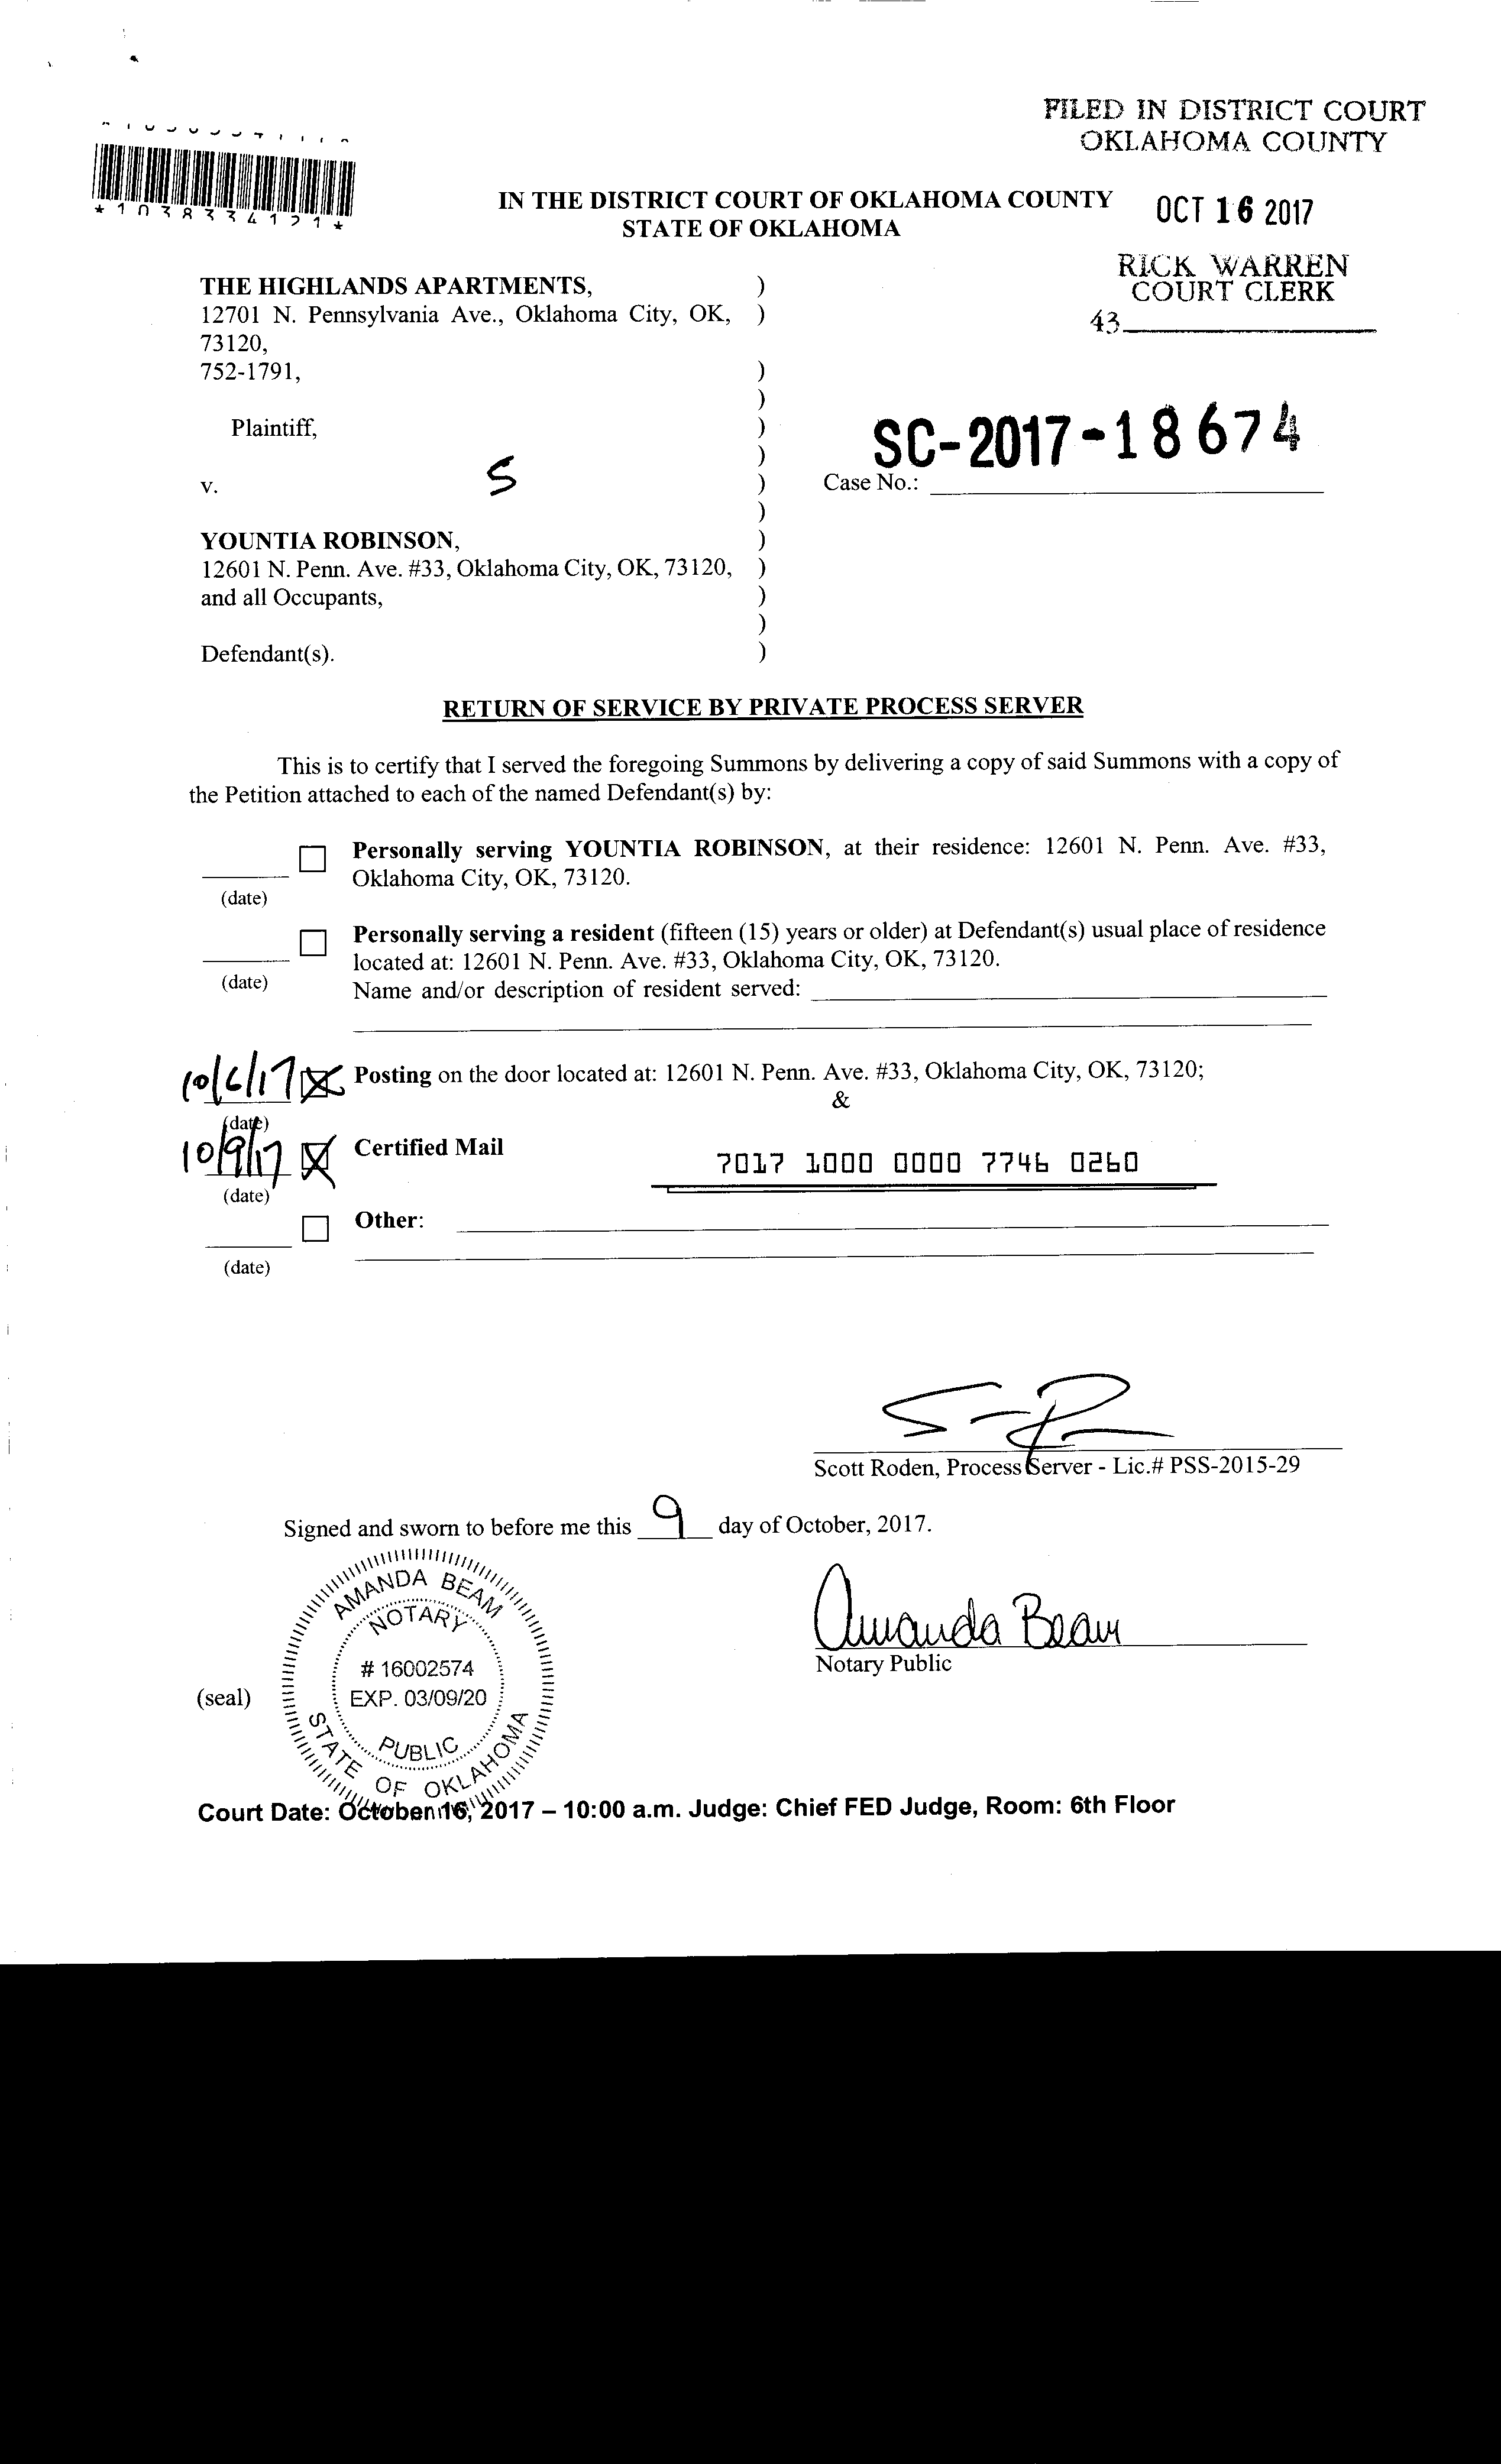 FILED IN DISTRICT COURT
OKLAHOMA COUNTY
*1038334121*
IN THE DISTRICT COURT OF OKLAHOMA COUNTY
STATE OF OKLAHOMA
OCT 16 2017
RICK WARREN
COURT CLERK
43
THE HIGHLANDS APARTMENTS, )
12701 N. Pennsylvania Ave., Oklahoma City, OK, )
73120,
752-1791, )
)
Plaintiff, )
)
SC-2017-18674
v. S )
Case No.:
)
YOUNTIA ROBINSON, )
12601 N. Penn. Ave. #33, Oklahoma City, OK, 73120, )
and all Occupants, )
)
Defendant(s). )
RETURN OF SERVICE BY PRIVATE PROCESS SERVER
This is to certify that I served the foregoing Summons by delivering a copy of said Summons with a copy of
the Petition attached to each of the named Defendant(s) by:
Personally serving YOUNTIA ROBINSON, at their residence: 12601 N. Penn. Ave. #33,
Oklahoma City, OK, 73120.
(date)
Personally serving a resident (fifteen (15) years or older) at Defendant(s) usual place of residence
located at: 12601 N. Penn. Ave. #33, Oklahoma City, OK, 73120.
(date)
Name and/or description of resident served:
10/6/17 Posting on the door located at: 12601 N. Penn. Ave. #33, Oklahoma City, OK, 73120;
&
(date)
10/9/17 Certified Mail 7017 1000 0000 7746 0260
(date)
Other:
(date)
Scott Roden, Process Server - Lic.# PSS-2015-29
Signed and sworn to before me this 9 day of October, 2017.
AMANDA BEAM
NOTARY
# 16002574
EXP. 03/09/20
PUBLIC
STATE OF OKLAHOMA
Amanda Beam
Notary Public
(seal)
Court Date: October 16, 2017 – 10:00 a.m. Judge: Chief FED Judge, Room: 6th Floor